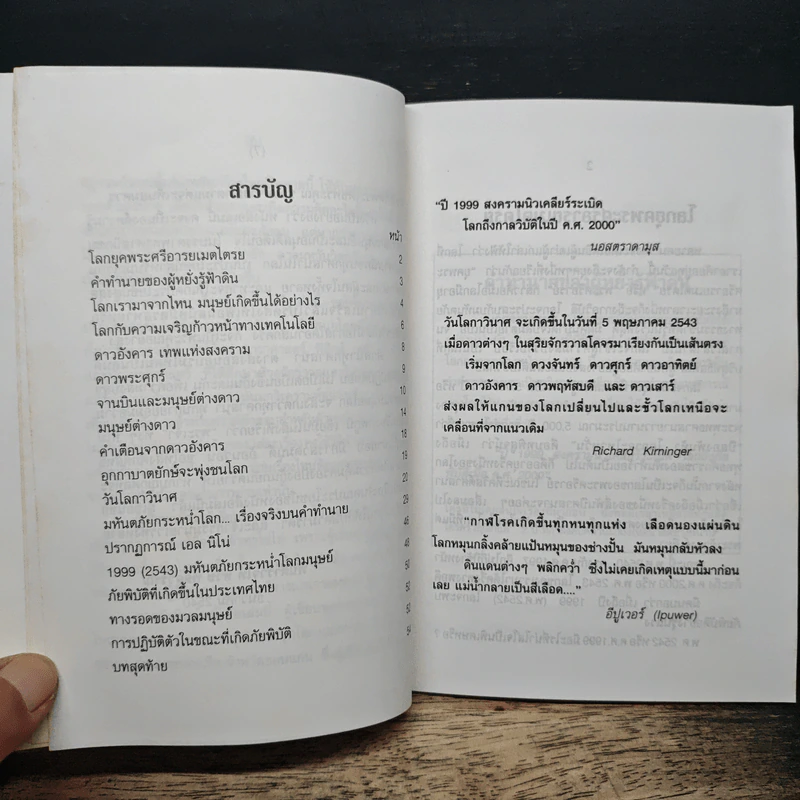 สารบัญ
หน้า
โลกยุคพระศรีอารยเมตไตรย 2
คำทำนายของผู้หยั่งรู้ฟ้าดิน 3
โลกเรามาจากไหน มนุษย์เกิดขึ้นได้อย่างไร 4
โลกกับความเจริญก้าวหน้าทางเทคโนโลยี 6
ดาวอังคาร เทพแห่งสงคราม 8
ดาวพระศุกร์ 9
จานบินและมนุษย์ต่างดาว 10
มนุษย์ต่างดาว 14
คำเตือนจากดาวอังคาร 18
อุกกาบาตยักษ์จะพุ่งชนโลก 19
วันโลกาวินาศ 20
มหันตภัยกระหน่ำโลก... เรื่องจริงบนคำทำนาย 29
ปรากฏการณ์ เอล นิโน่ 46
1999 (2543) มหันตภัยกระหน่ำโลกมนุษย์ 48
ภัยพิบัติที่เกิดขึ้นในประเทศไทย 50
ทางรอดของมวลมนุษย์ 50
การปฏิบัติตัวในขณะที่เกิดภัยพิบัติ 54
บทสุดท้าย
"ปี 1999 สงครามนิวเคลียร์ระเบิด
โลกถึงกาลวิบัติในปี ค.ศ. 2000"
นอสตราดามุส
วันโลกาวินาศ จะเกิดขึ้นในวันที่ 5 พฤษภาคม 2543
เมื่อดาวต่างๆ ในสุริยจักรวาลโคจรมาเรียงกันเป็นเส้นตรง
เริ่มจากโลก ดวงจันทร์ ดาวศุกร์ ดาวอาทิตย์
ดาวอังคาร ดาวพฤหัสบดี และ ดาวเสาร์
ส่งผลให้แกนของโลกเปลี่ยนไปและขั้วโลกเหนือจะ
เคลื่อนที่จากแนวเดิม
Richard Kirninger
"กาฬโรคเกิดขึ้นทุกหนทุกแห่ง เลือดนองแผ่นดิน
โลกหมุนกลิ้งคล้ายแป้นหมุนของช่างปั้น มันหมุนกลับหัวลง
ดินแดนต่างๆ พลิกคว่ำ ซึ่งไม่เคยเกิดเหตุแบบนี้มาก่อน
เลย แม่น้ำกลายเป็นสีเลือด...."
อีปูเวอร์ (Ipuwer)